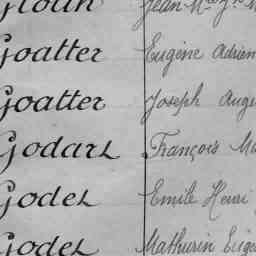 Jean M
Goatter Eugène Adrien
Goatter Joseph Auge
Godart François Ma
Godet Emile Henri
Godet Mathurin Eugè